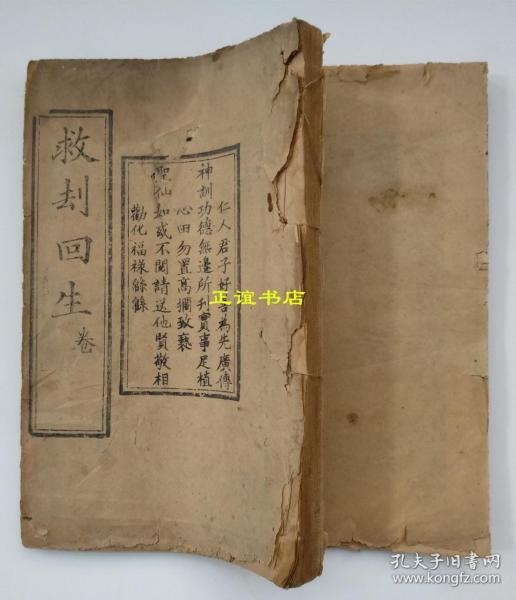 救刦回生
卷
仁人君子好善為先廣傳
神訓功德無邊所刋實事足植
心田勿置高擱致褻
聖仙如或不閱請送他賢敬相
勸化福祿綿綿
正谊书店
孔夫子旧书网
www.kongfz.com